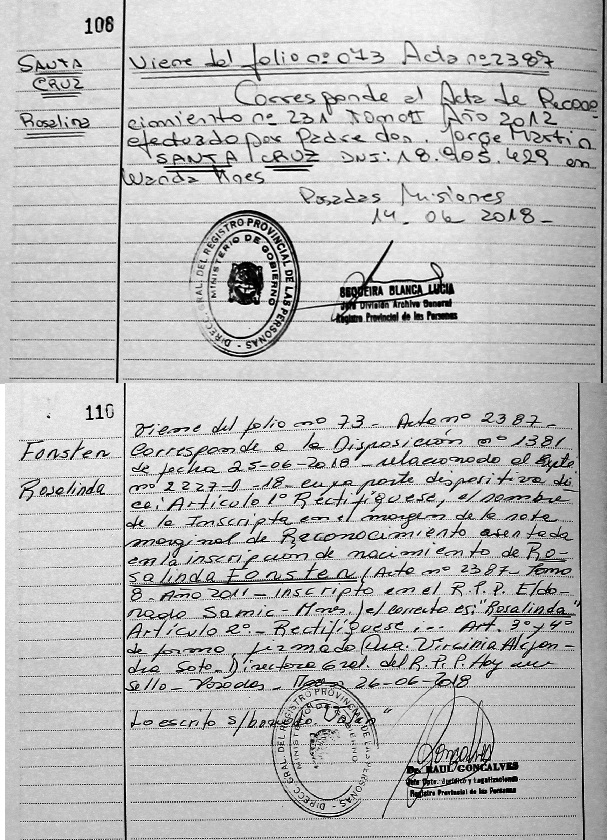 108
SANTA
CRUZ
Rosalina
Viene del folio nº 073 Acta nº 2387
Corresponde al Acta de Recono
cimiento nº 231 Tomo II Año 2012
efectuado por Padre don. Jorge Martin
SANTA CRUZ DNI: 18.905.429 en
Wanda Mnes
Posadas Misiones
14. 06 2018-
DIRECC. GRAL. DEL REGISTRO PROVINCIAL DE LAS PERSONAS
MINISTERIO DE GOBIERNO
SEQUEIRA BLANCA LUCIA
Jefe División Archivo General
Registro Provincial de las Personas
110
Fonsten
Rosalinda
Viene del folio nº 73- Acta nº 2387-
Corresponde a la Disposición nº 1381
de fecha 25-06-2018- relacionado al Expte
nº 2227- -18- cuya parte dispositiva di
ce: Artículo 1º Rectifíquese, el nombre
de la Inscripta en el margen de la nota
marginal de Reconocimiento asentada
en la inscripción de nacimiento de Ro-
salinda Fonsten (Acta nº 2387- Tomo
8- Año 2011- Inscripto en el R.P.P. Eldo-
rado Samic- Mnes.) el correcto es: "Rosalinda"
Artículo 2º- Rectifíquese ... Art. 3º y 4º
de forma, firmado (Dra. Virginia Alejan-
dra Soto-) Directora Gral. del R.P.P. Hay un
sello- Posadas- 26-06-2018
Lo escrito s/borrado
DIRECC. GRAL. DEL REGISTRO PROVINCIAL DE LAS PERSONAS
MINISTERIO DE GOBIERNO
Dr. RAUL GONCALVES
Jefe Dpto. Jurídico y Legalizaciones
Registro Provincial de las Personas